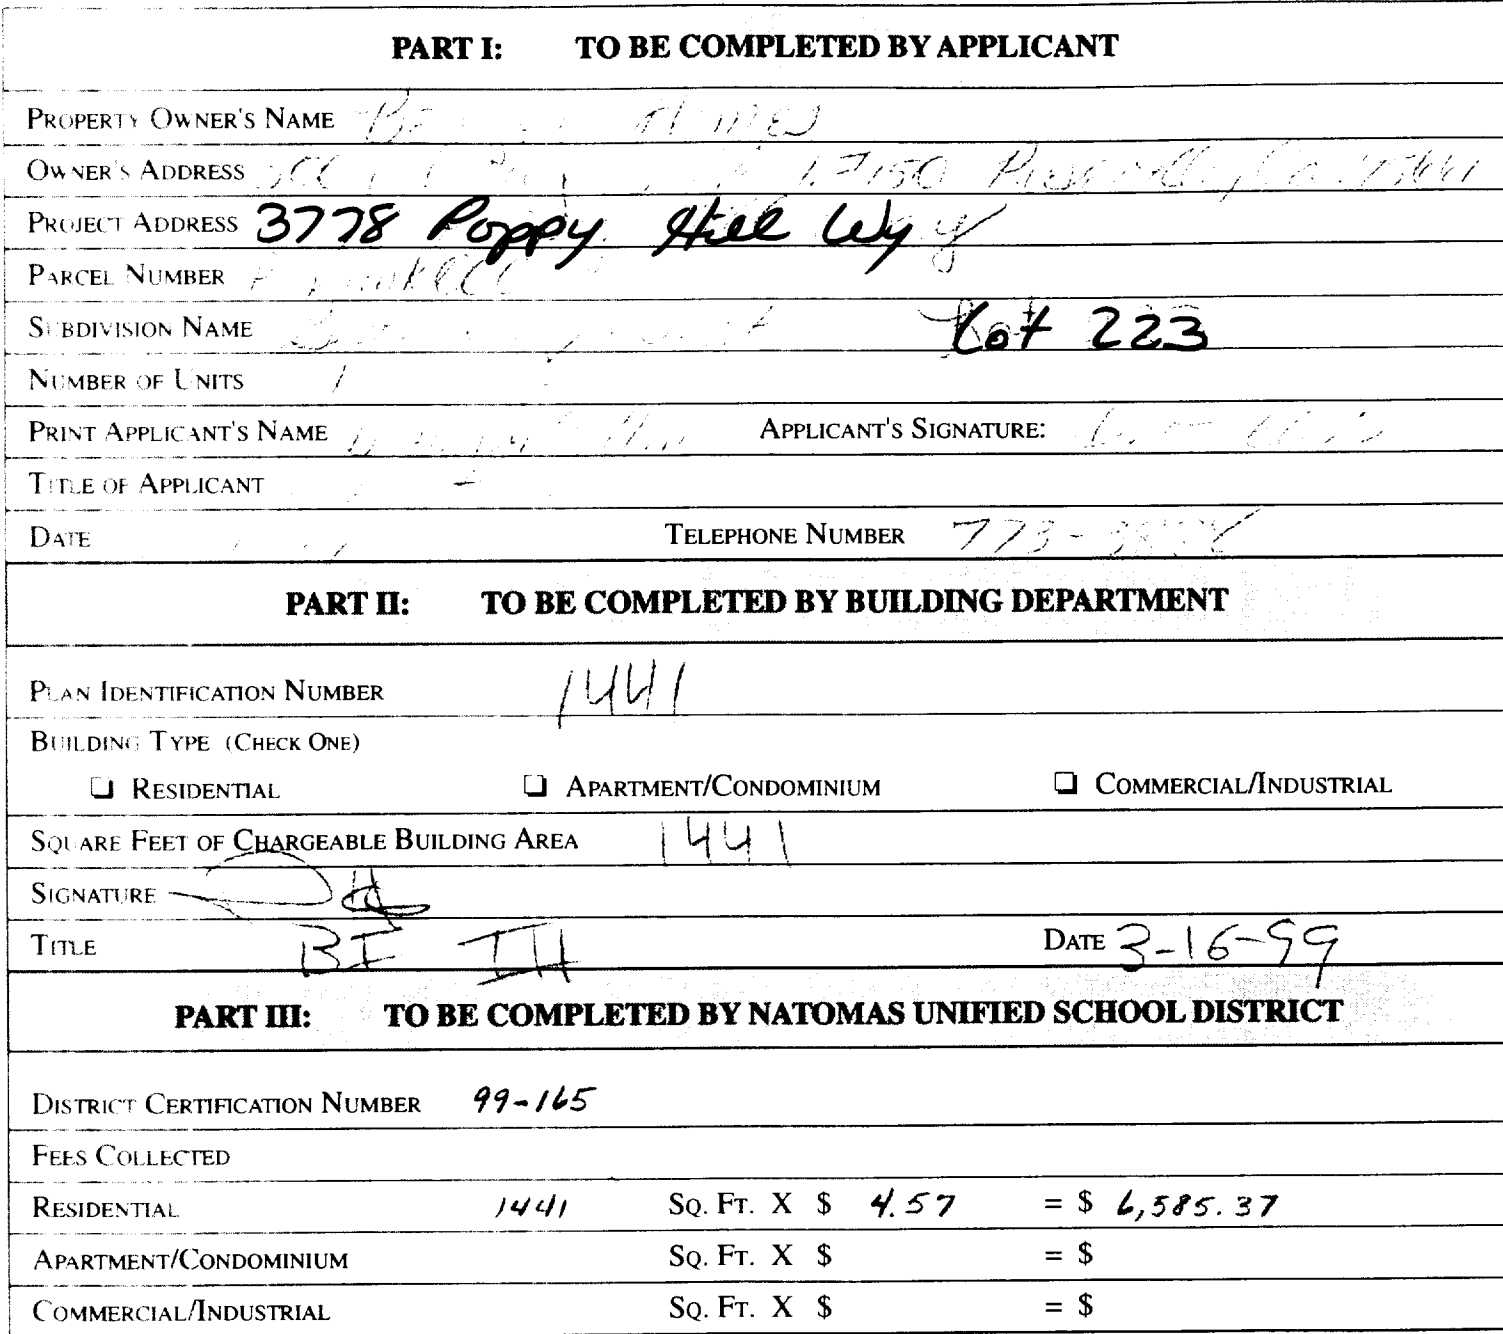 PART I: TO BE COMPLETED BY APPLICANT
PROPERTY OWNER'S NAME
OWNER'S ADDRESS
PROJECT ADDRESS 3778 Poppy Hill Wy
PARCEL NUMBER
SUBDIVISION NAME Lot 223
NUMBER OF UNITS 1
PRINT APPLICANT'S NAME APPLICANT'S SIGNATURE:
TITLE OF APPLICANT
DATE TELEPHONE NUMBER
PART II: TO BE COMPLETED BY BUILDING DEPARTMENT
PLAN IDENTIFICATION NUMBER 1441
BUILDING TYPE (CHECK ONE)
❑ RESIDENTIAL ❑ APARTMENT/CONDOMINIUM ❑ COMMERCIAL/INDUSTRIAL
SQUARE FEET OF CHARGEABLE BUILDING AREA 1441
SIGNATURE
TITLE BI III DATE 3-16-99
PART III: TO BE COMPLETED BY NATOMAS UNIFIED SCHOOL DISTRICT
DISTRICT CERTIFICATION NUMBER 99-165
FEES COLLECTED
RESIDENTIAL 1441 SQ. FT. X $ 4.57 = $ 6,585.37
APARTMENT/CONDOMINIUM SQ. FT. X $ = $
COMMERCIAL/INDUSTRIAL SQ. FT. X $ = $